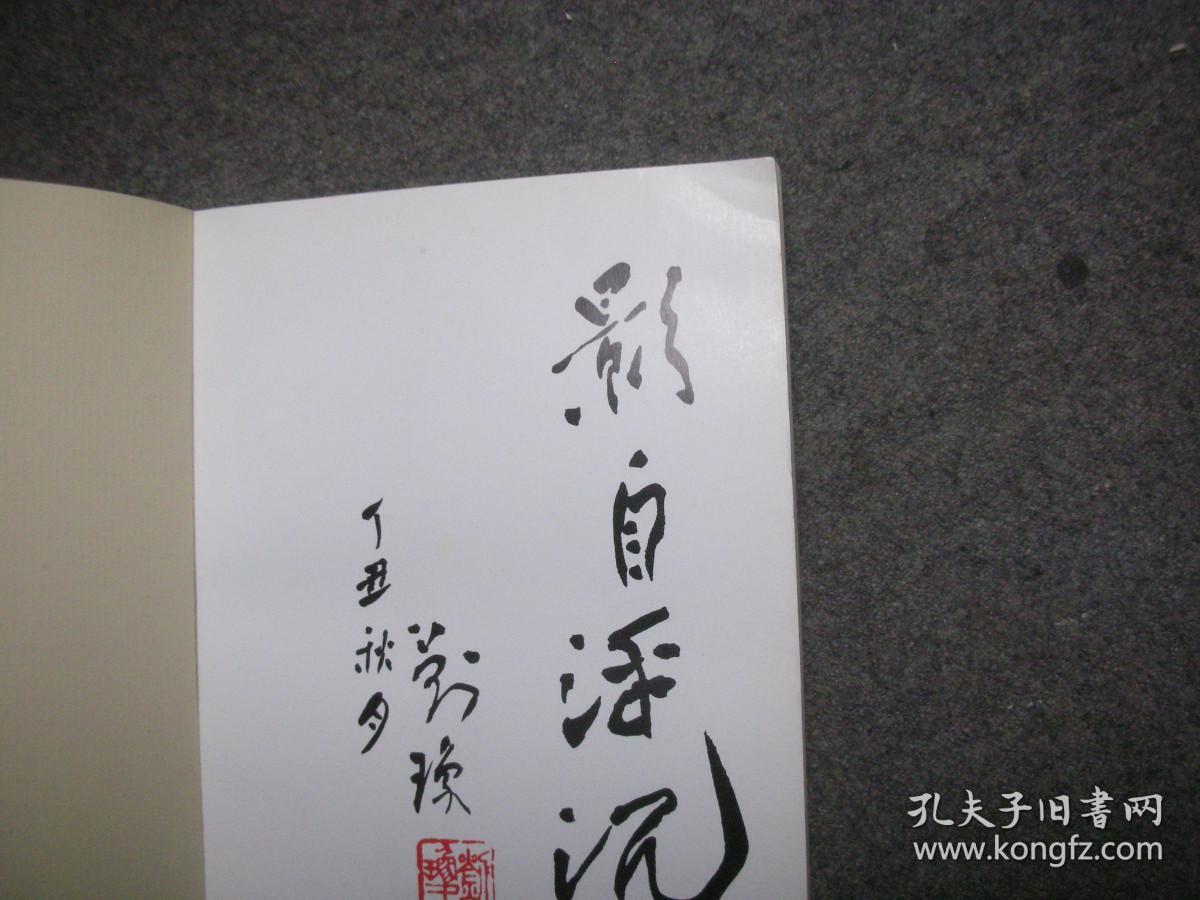 影自浮沉
劉瓊
丁丑秋月
劉瓊
孔夫子旧書网
www.kongfz.com